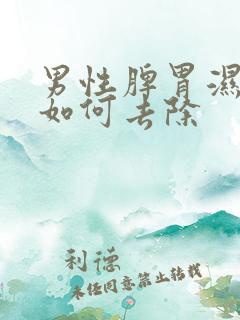 男性脾胃濕
如何去除
利德
未经同意禁止转载